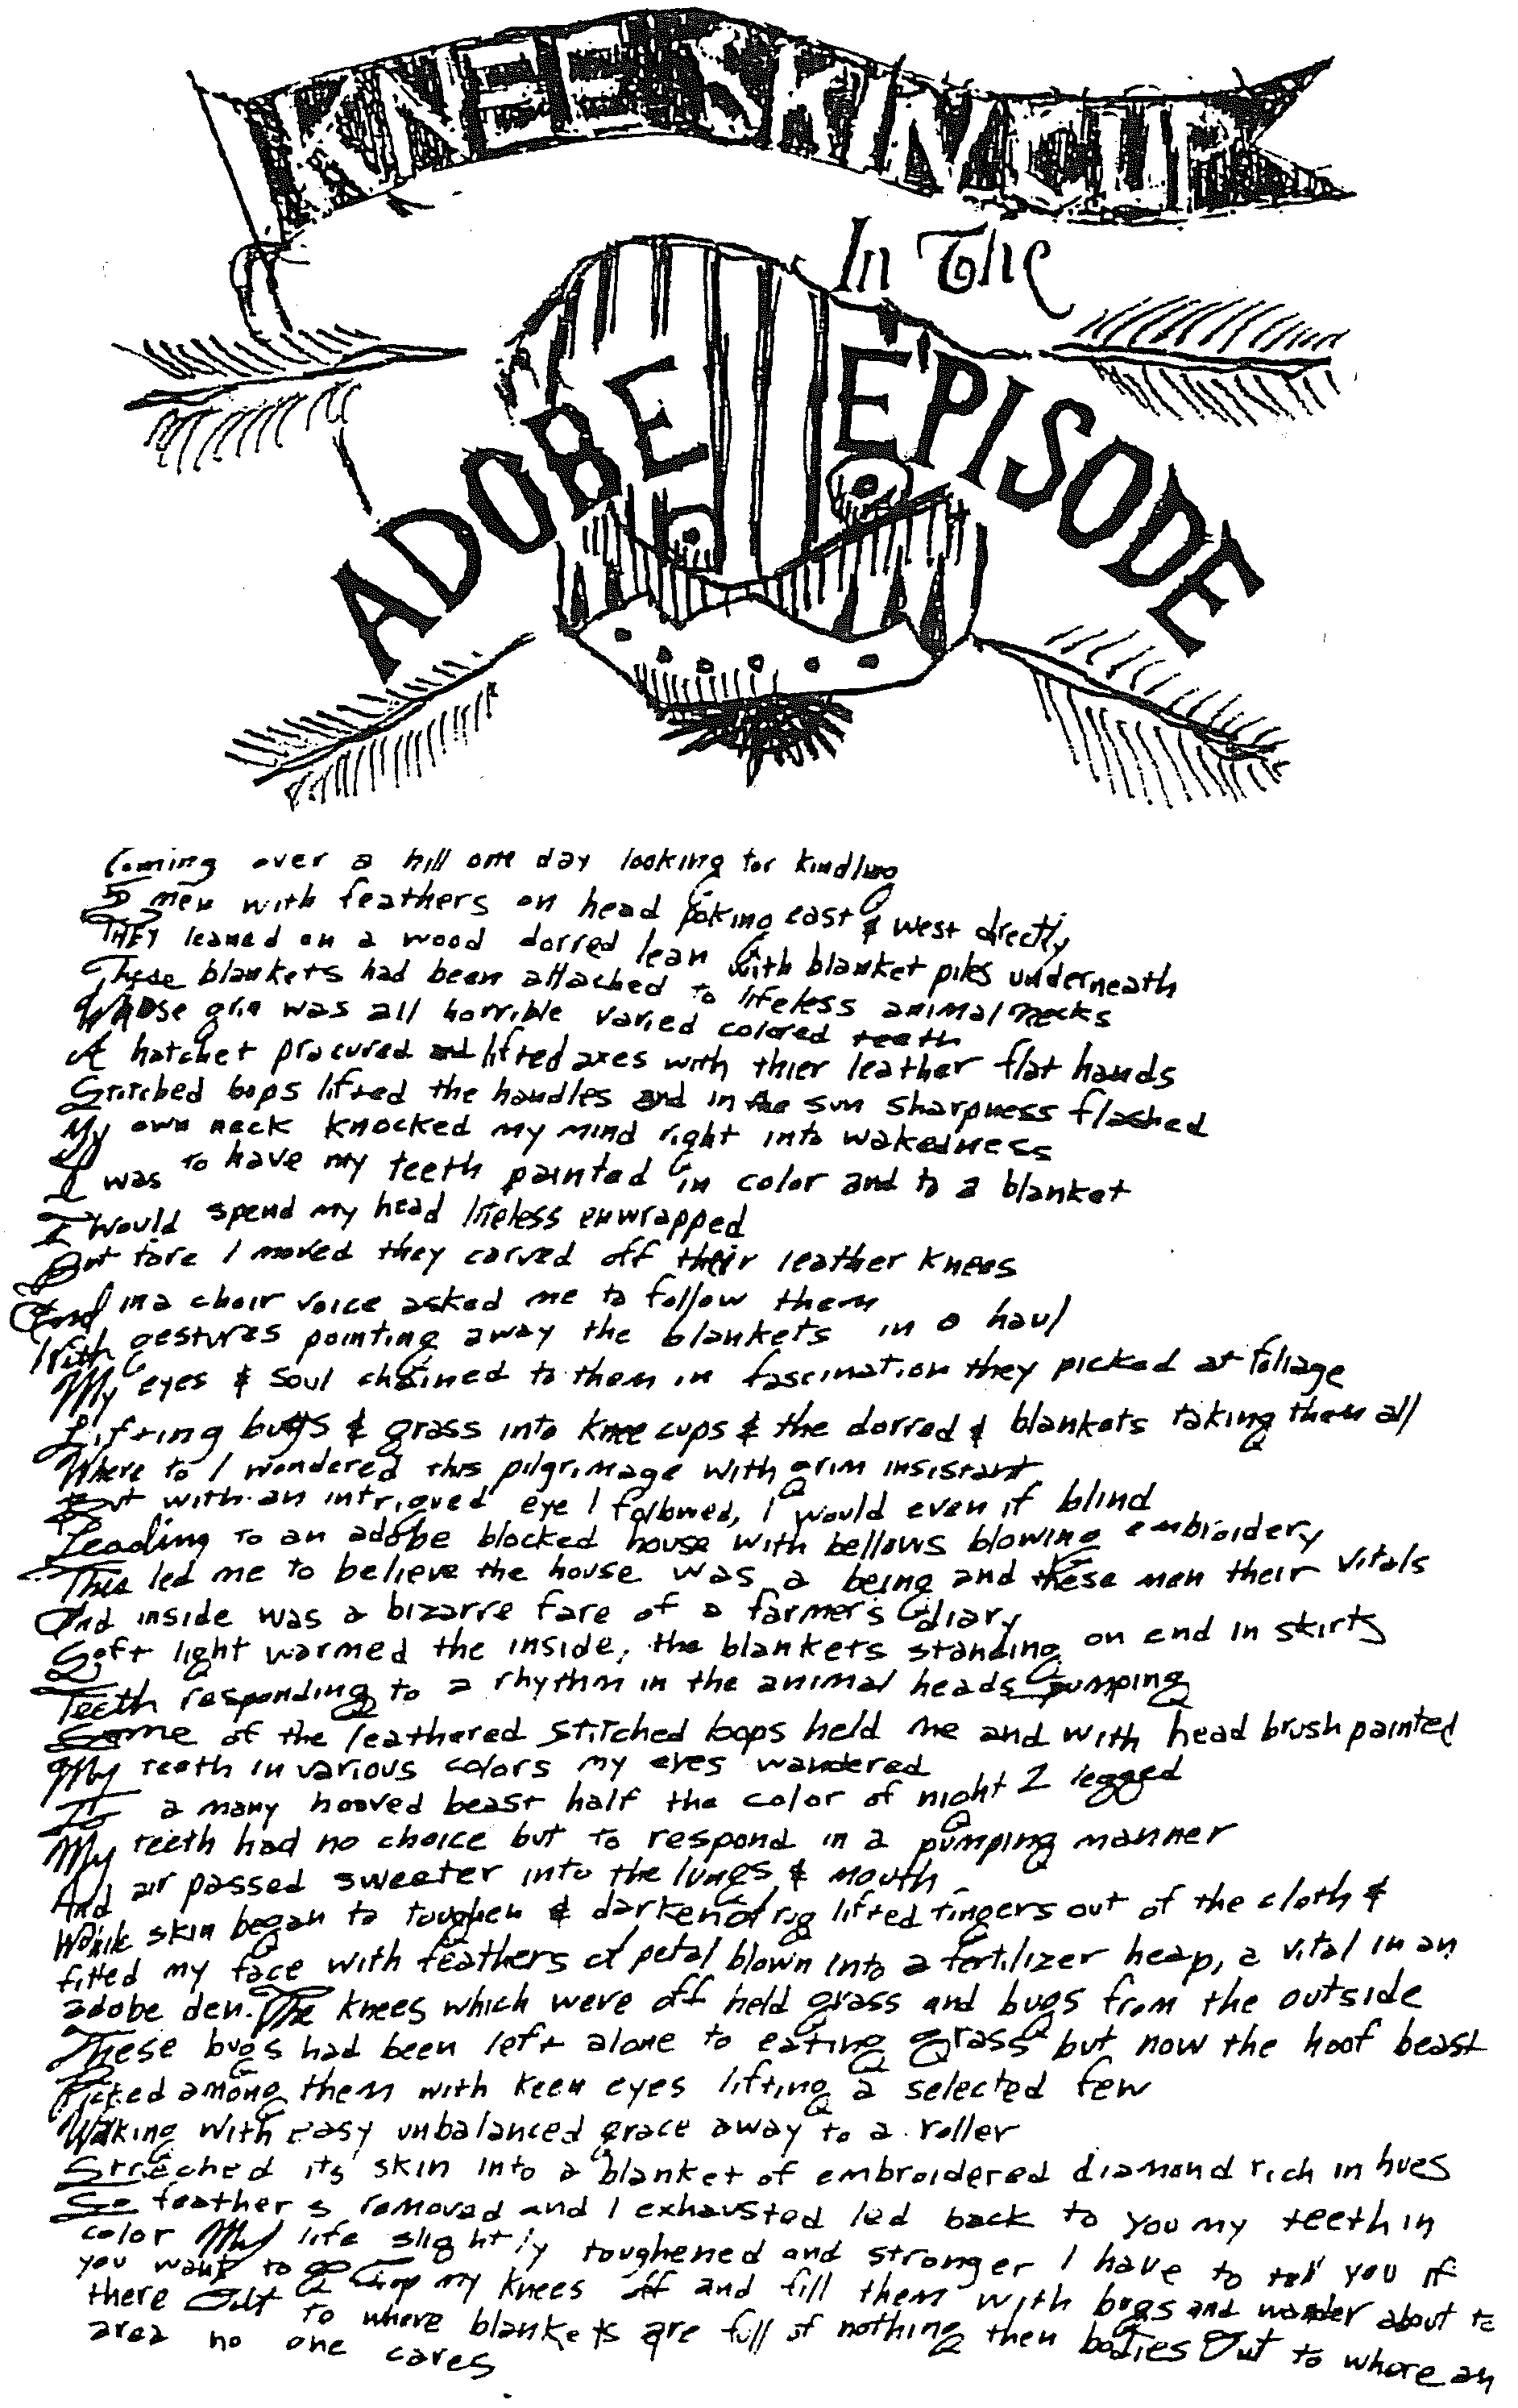 KNEE SKIN CUP
In The
ADOBE EPISODE
Coming over a hill one day looking for kindling
5 men with feathers on head poking east & west directly
THEY leaned on a wood dorred lean with blanket piles underneath
These blankets had been attached to lifeless animal necks
Whose grin was all horrible varied colored teeth
A hatchet procured and lifted axes with thier leather flat hands
Stitched bops lifted the handles and in the sun sharpness flashed
My own neck knocked my mind right into wakedness
I was to have my teeth painted in color and to a blanket
I would spend my head lifeless enwrapped
But fore I moved they carved off their leather knees
And in a choir voice asked me to follow them
With gestures pointing away the blankets in a haul
My eyes & soul chained to them in fascination they picked at foliage
Lifting bugs & grass into knee cups & the dorred & blankets taking them all
Where to I wondered this pilgrimage with grim insistant
But with an intrigued eye I followed, I would even if blind
Leading to an adobe blocked house with bellows blowing embroidery
This led me to believe the house was a being and these men their vitals
And inside was a bizarre fare of a farmer's diary
Soft light warmed the inside, the blankets standing on end in skirts
Teeth responding to a rhythm in the animal heads pumping
Some of the leathered stitched bops held me and with head brush painted
My teeth in various colors my eyes wandered
To a many hooved beast half the color of night 2 legged
My teeth had no choice but to respond in a pumping manner
And air passed sweeter into the lungs & mouth
skin began to toughen & darken of rug lifted fingers out of the cloth &
fitted my face with feathers of petal blown into a fertilizer heap, a vital in an
adobe den. The knees which were off held grass and bugs from the outside
These bugs had been left alone to eating grass but now the hoof beast
Picked among them with keen eyes lifting a selected few
Walking with easy unbalanced grace away to a roller
Streched its skin into a blanket of embroidered diamond rich in hues
So feathers removed and I exhausted led back to you my teeth in
color My life slightly toughened and stronger I have to tell you if
you want to go Crop my knees off and fill them with bugs and wander about to
there Out to where blankets are full of nothing then bodies Out to where an
area no one cares